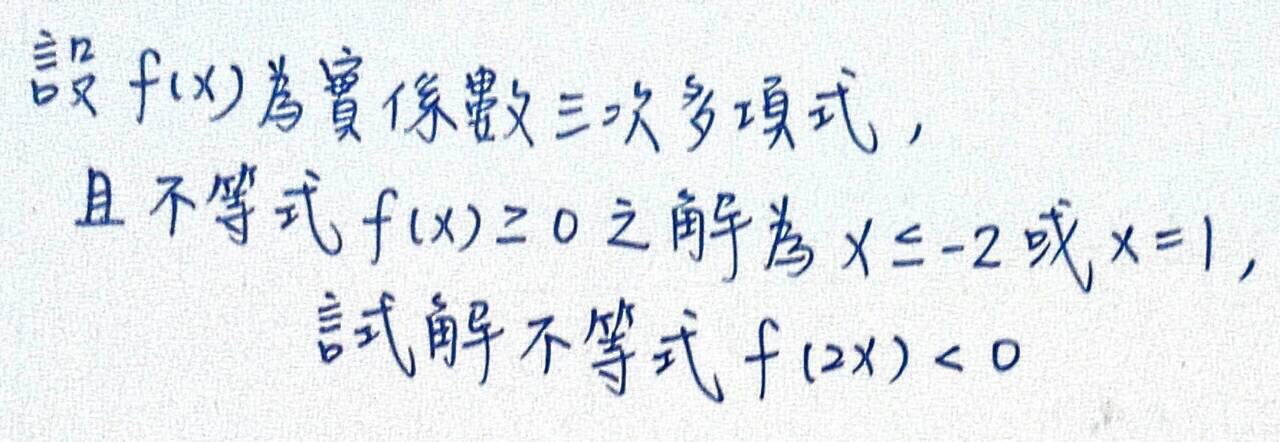 設 f(x) 為實係數三次多項式,
且不等式 f(x) ≥ 0 之解為 x ≤ -2 或 x = 1,
試解不等式 f(2x) < 0